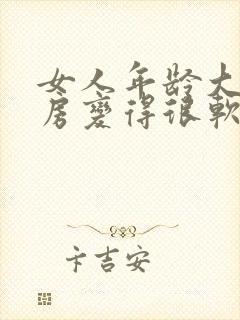 女人年龄大
房变得很软
卞吉安